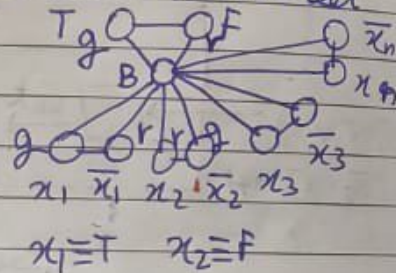 T g r F
x̄n
B xn
g r r g x̄3
x1 x̄1 x2 x̄2 x3
x1≡T x2≡F